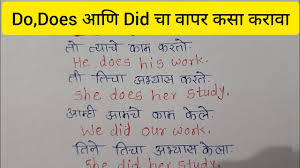 Do,Does आणि Did चा वापर कसा करावा
तो त्याचे काम करतो.
He does his work.
ती तिचा अभ्यास करते.
She does her study.
आम्ही आमचे काम केले.
We did our work.
तिने तिचा अभ्यास केला.
She did her study.